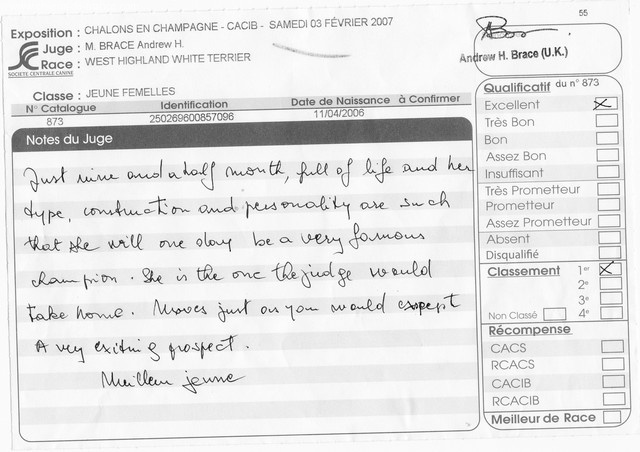 55
Exposition : CHALONS EN CHAMPAGNE - CACIB - SAMEDI 03 FÉVRIER 2007
Juge : M. BRACE Andrew H.
Race : WEST HIGHLAND WHITE TERRIER
SOCIETE CENTRALE CANINE
Andrew H. Brace (U.K.)
Classe : JEUNE FEMELLES
N° Catalogue Identification Date de Naissance à Confirmer
873 250269600857096 11/04/2006
Notes du Juge
Just nine and a half month, full of life and her
type, construction and personality are such
that she will one day be a very famous
champion. She is the one the judge would
take home. Moves just as you would expept
A very exiting prospect.
Meilleur jeune
Qualificatif du n° 873
Excellent X
Très Bon
Bon
Assez Bon
Insuffisant
Très Prometteur
Prometteur
Assez Prometteur
Absent
Disqualifié
Classement 1er X
2e
3e
Non Classé 4e
Récompense
CACS
RCACS
CACIB
RCACIB
Meilleur de Race